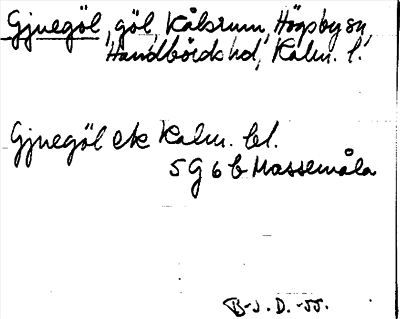 Gjuegöl, göl, Kålsrum, Högsby sn,
Handbörds hd, Kalm. l.
Gjuegöl ek Kalm. bl.
5 G 6 b Massemåla
B-J. D. -55.